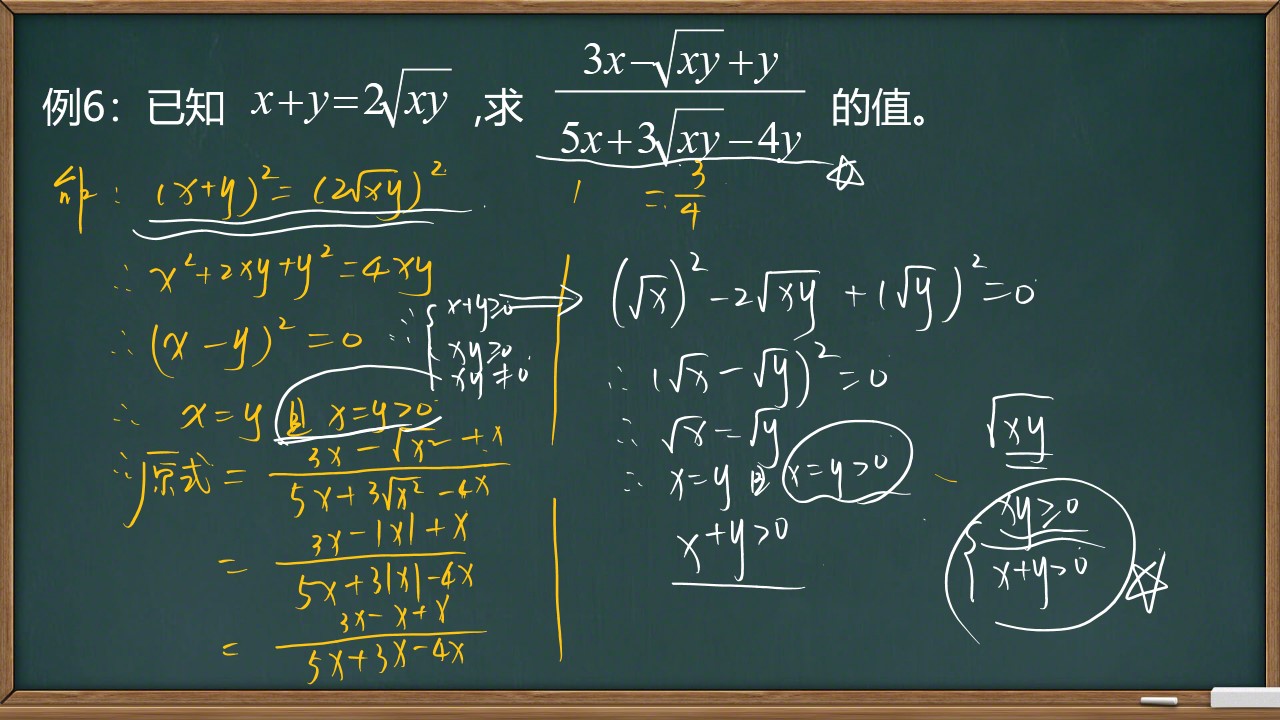 例6：已知 x+y=2√xy ,求 (3x-√xy+y)/(5x+3√xy-4y) 的值。
解： (x+y)²=(2√xy)²
= 3/4
∴ x²+2xy+y²=4xy
∴ (x-y)²=0 ∵ { x+y≥0
xy≥0
xy≠0
∴ x=y 且 x=y>0
∴ 原式 = (3x-√x²+x)/(5x+3√x²-4x)
= (3x-|x|+x)/(5x+3|x|-4x)
= (3x-x+x)/(5x+3x-4x)
(√x)²-2√xy+(√y)²=0
∴ (√x-√y)²=0
∴ √x=√y
∴ x=y 且 x=y>0
x+y>0
√xy
{ xy≥0
x+y>0